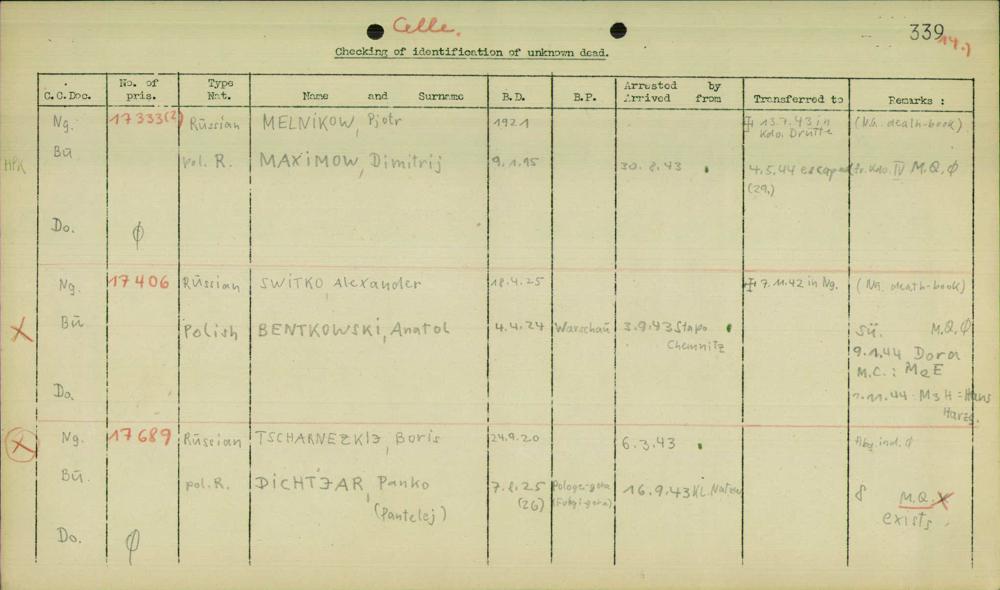 Celle.
339
14.)
Checking of identification of unknown dead.
C.C.Doc. No. of pris. Type Nat. Name and Surname B.D. B.P. Arrested by Arrived from Transferred to Remarks :
Ng. 17333(2) Rüssian MELNIKOW, Pjotr 1921 13.7.43 in (NG. death-book)
Kdo. Drütte
HPK Bü pol. R. MAXIMOW, Dimitrij 9.1.15 30.8.43 4.5.44 escaped fr. Kdo. IV M.Q. Ø
(29.)
Do. Ø
Ng. 17406 Rüssian SWITKO Alexander 18.4.25 7.11.42 in Ng. (Ng. death-book)
X Bü. Polish BENTKOWSKI, Anatol 4.4.24 Warschaü 3.9.43 Stapo Sü. M.Q. Ø
Chemnitz
9.1.44 Dora
M.C.: MQE
Do. M3H = Hans
Harzg.
X Ng. 17689 Rüssian Boris 24.9.20 6.3.43 Ø
Bü. pol. R. DICHTJAR, Panko 7.8.25 16.9.43 KL. Natzw. M.Q. X
(26)
(Pantelej) exists
Do. Ø